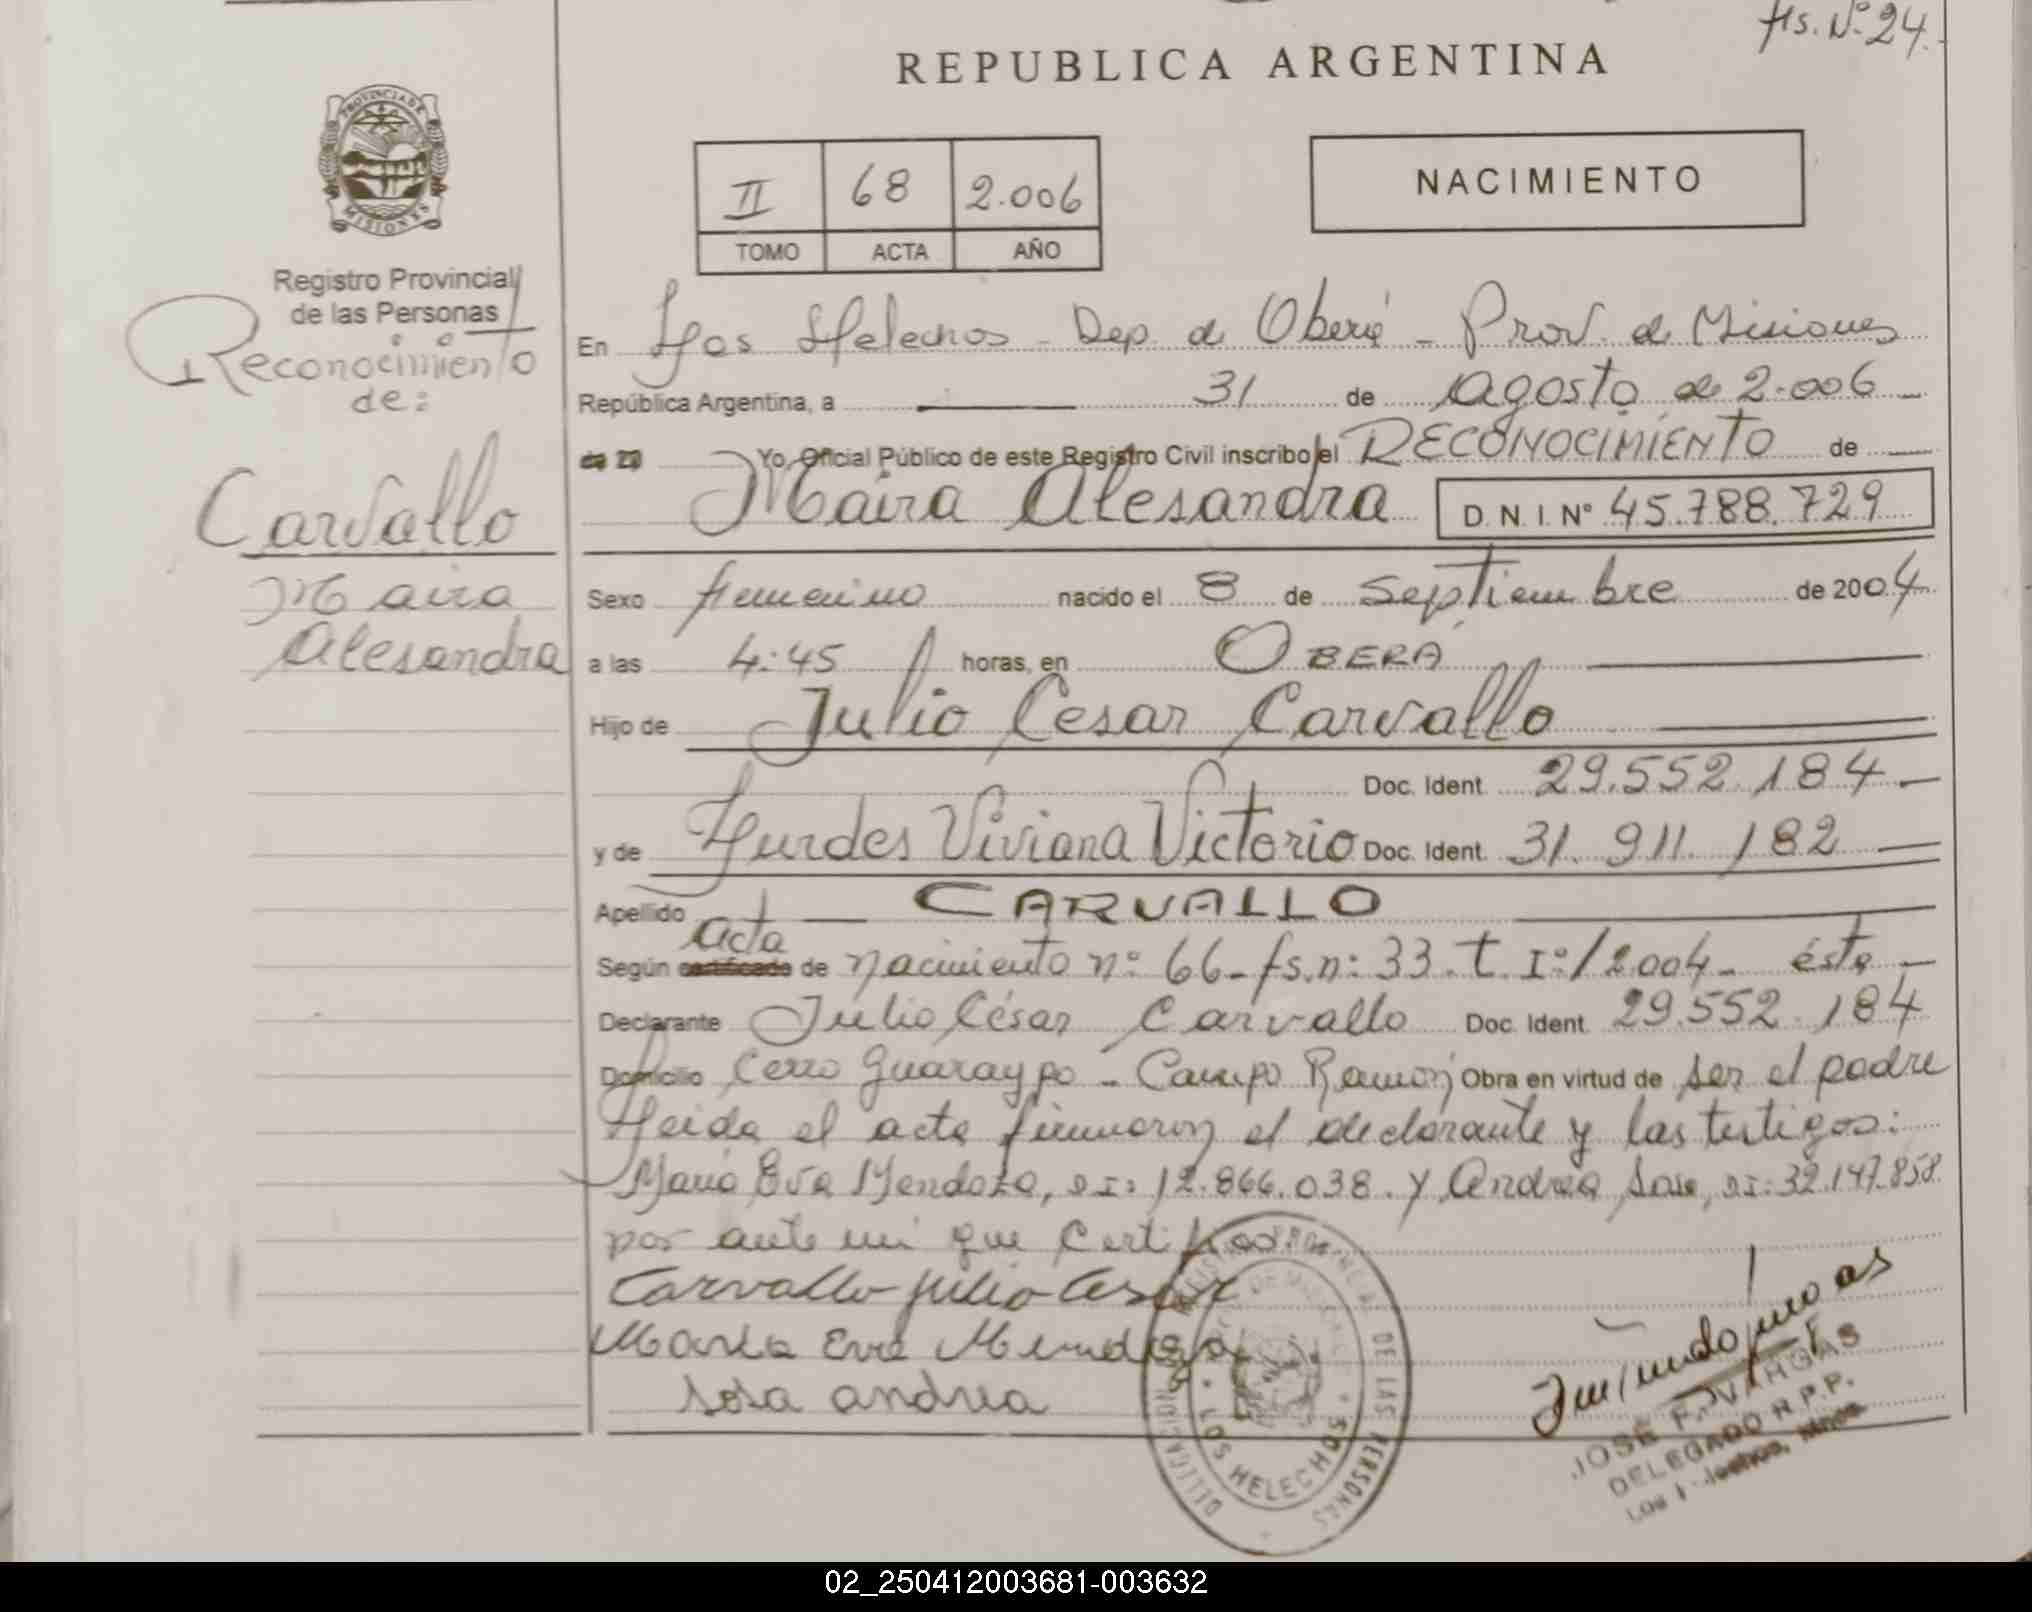 fs. Nº 24.
REPUBLICA ARGENTINA
PROVINCIA DE
MISIONES
II 68 2.006
TOMO ACTA AÑO
NACIMIENTO
Registro Provincial
de las Personas
Reconocimiento
de:
Carvallo
Maira
Alesandra
En Los Helechos - Dep. de Oberá - Prov. de Misiones
República Argentina, a 31 de agosto de 2.006
Yo, Oficial Público de este Registro Civil inscribo el RECONOCIMIENTO de
Maira Alesandra D.N.I. Nº 45.788.729
Sexo femenino nacido el 8 de Septiembre de 2004
a las 4:45 horas, en OBERÁ
Hijo de Julio Cesar Carvallo
Doc. Ident. 29.552.184
y de Lurdes Viviana Victorio Doc. Ident. 31.911.182
Apellido CARVALLO
acta
Según certificado de nacimiento nº 66 - fs. nº 33. t. Iº/2004 - ésta
Declarante Julio César Carvallo Doc. Ident. 29.552.184
Domicilio Cerro Guaraypo - Campo Ramón Obra en virtud de ser el padre
Leida el acta firmaron el declarante y las testigos:
María Eva Mendoza, DI: 12.866.038. y Andrea Sosa, DI: 32.147.858
por ante mi que Certifico.
Carvallo Julio Cesar
Maria Eva Mendoza
Sosa andrea
DELEGACION
DE LAS PERSONAS
LOS HELECHOS
JOSE F. VARGAS
DELEGADO R.P.P.
02_250412003681-003632